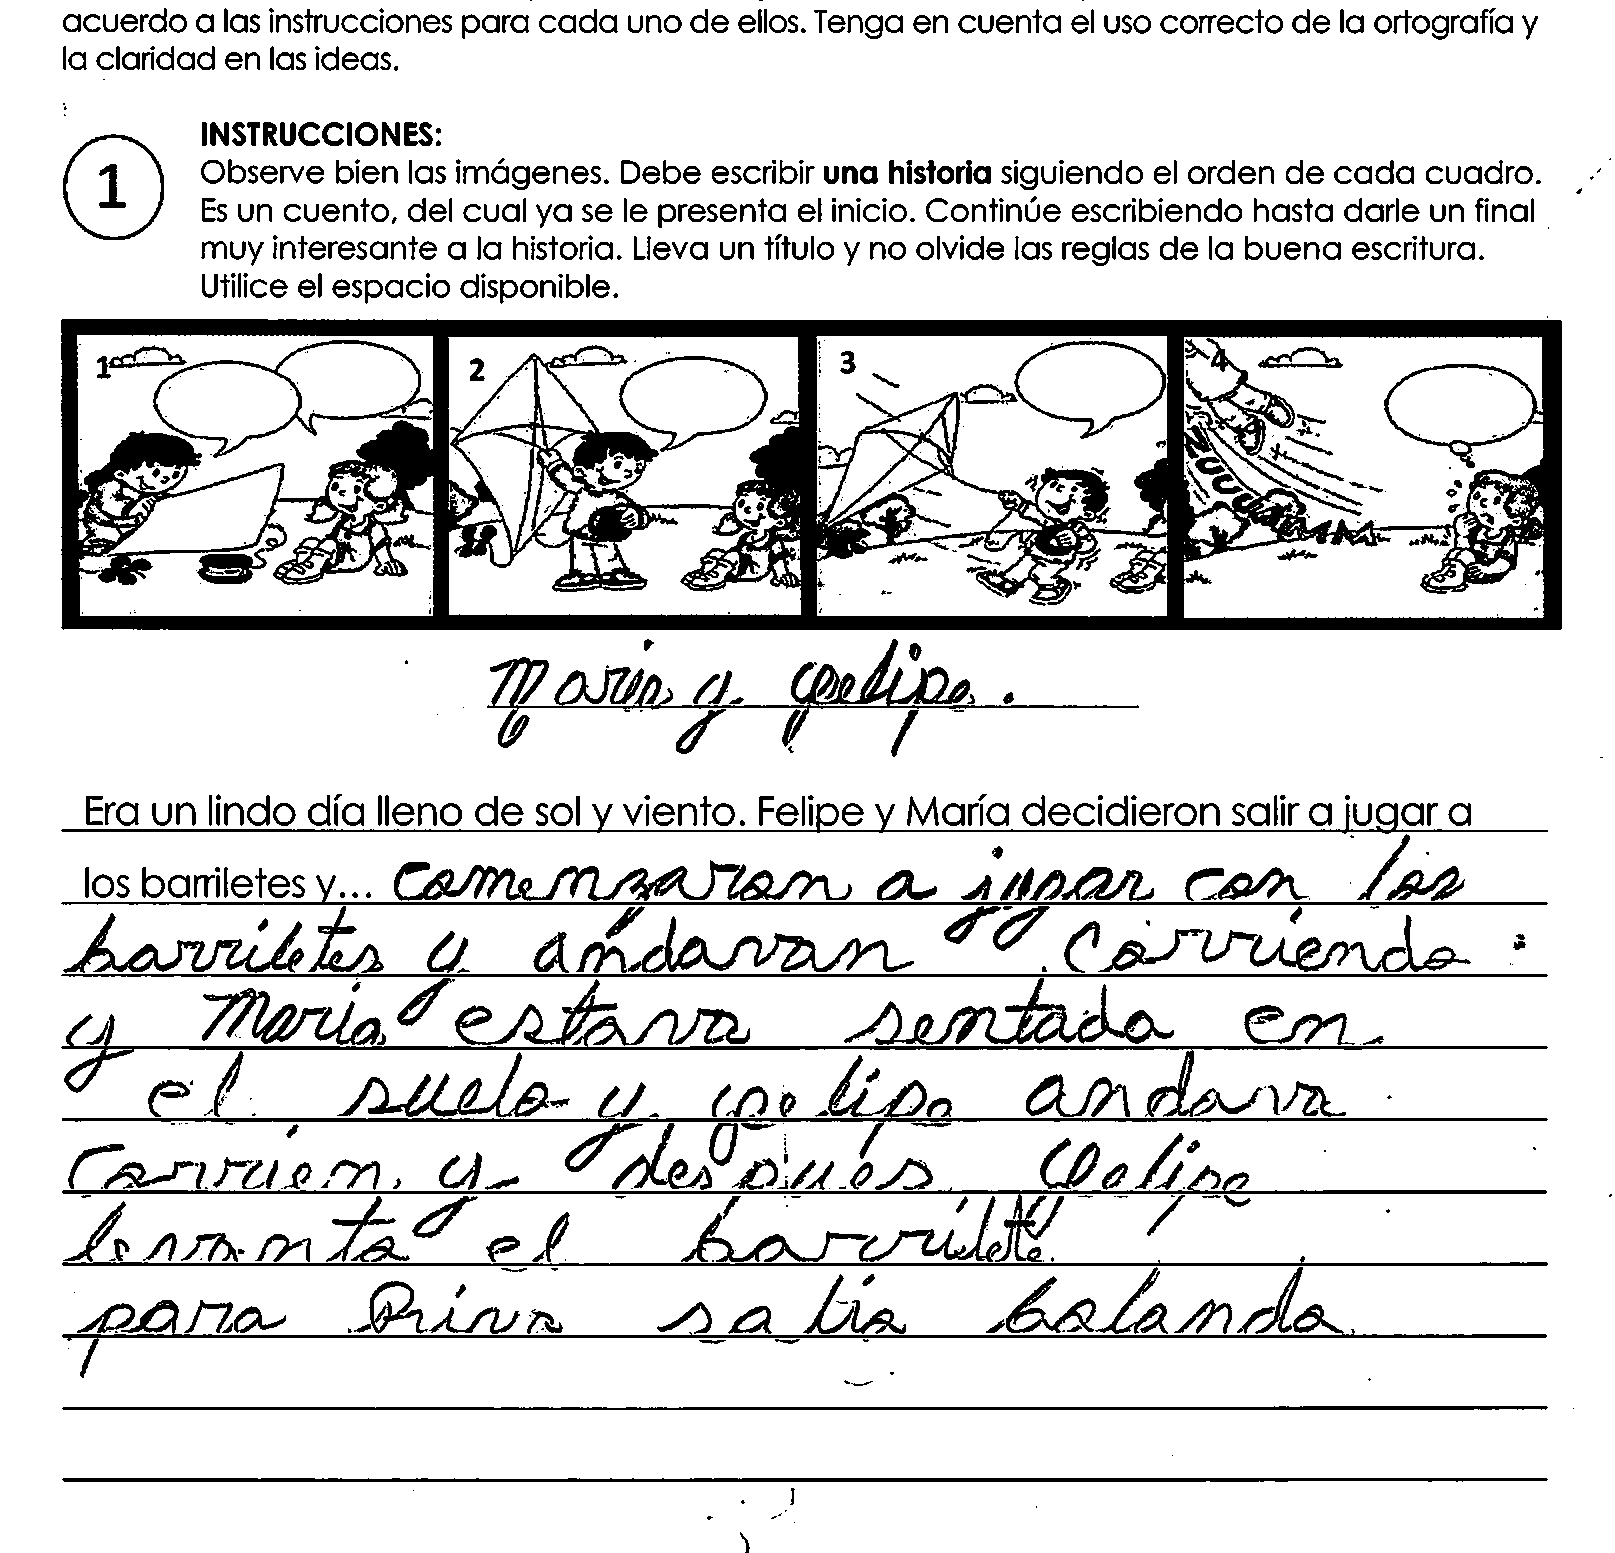 acuerdo a las instrucciones para cada uno de ellos. Tenga en cuenta el uso correcto de la ortografía y
la claridad en las ideas.
1
INSTRUCCIONES:
Observe bien las imágenes. Debe escribir una historia siguiendo el orden de cada cuadro.
Es un cuento, del cual ya se le presenta el inicio. Continúe escribiendo hasta darle un final
muy interesante a la historia. Lleva un título y no olvide las reglas de la buena escritura.
Utilice el espacio disponible.
1 2 3 4
ZUUUMMM
Maria y Felipe.
Era un lindo día lleno de sol y viento. Felipe y María decidieron salir a jugar a
los barriletes y... comenzaron a jugar con los
barriletes y andavan corriendo
y Maria estava sentada en
el suelo y Felipe andava
corrien y despues Felipe
levanta el barrilete
para salia bolando